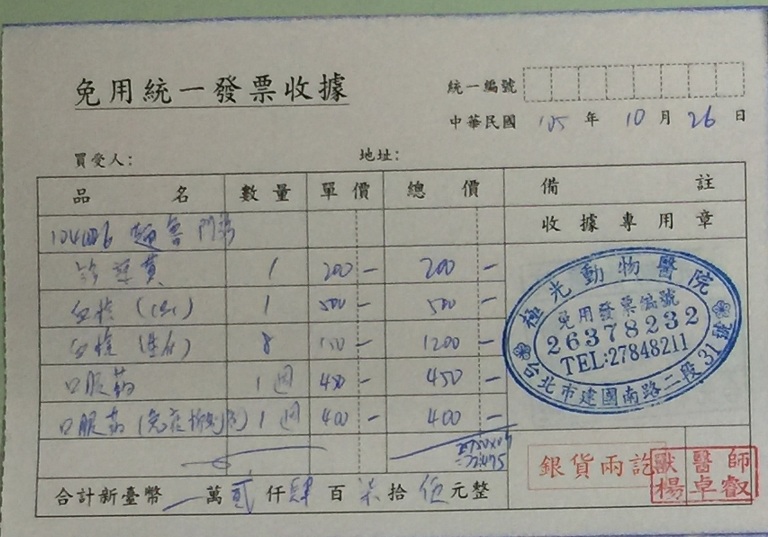 免用統一發票收據
統一編號
中華民國 105 年 10 月 26 日
買受人: 地址:
品名 數量 單價 總價 備註
收據專用章
門診
診療費 1 200- 200-
血檢 (CBC) 1 500- 500-
血檢 (生化) 8 150- 1200-
口服藥 1週 450- 450-
口服藥 (免疫抑制劑) 1週 400- 400-
2750×0.9
=2475
合計新臺幣 萬 貳 仟 肆 百 柒 拾 伍 元整
極光動物醫院
免用發票編號
26378232
TEL:27848211
台北市建國南路二段31號
銀貨兩訖
獸醫師
楊卓叡